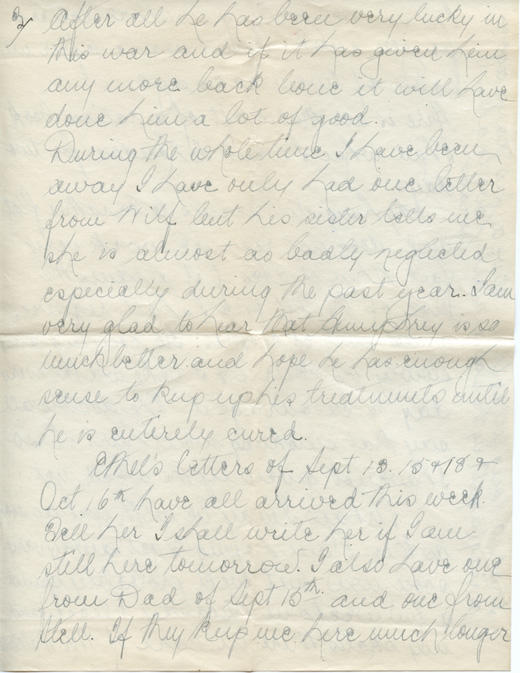 3/ After all he has been very lucky in
this war and if it has given him
any more back bone it will have
done him a lot of good.
During the whole time I have been
away I have only had one letter
from Wilf but his sister tells me
she is almost as badly neglected
especially during the past year. I am
very glad to hear that Humphrey is so
much better and hope he has enough
sense to keep up his treatments until
he is entirely cured.
Ethel's letters of Sept 13. 15 & 18 &
Oct 16th have all arrived this week.
Tell her I shall write her if I am
still here tomorrow. I also have one
from Dad of Sept 15th and one from
Hall. If they keep me here much longer